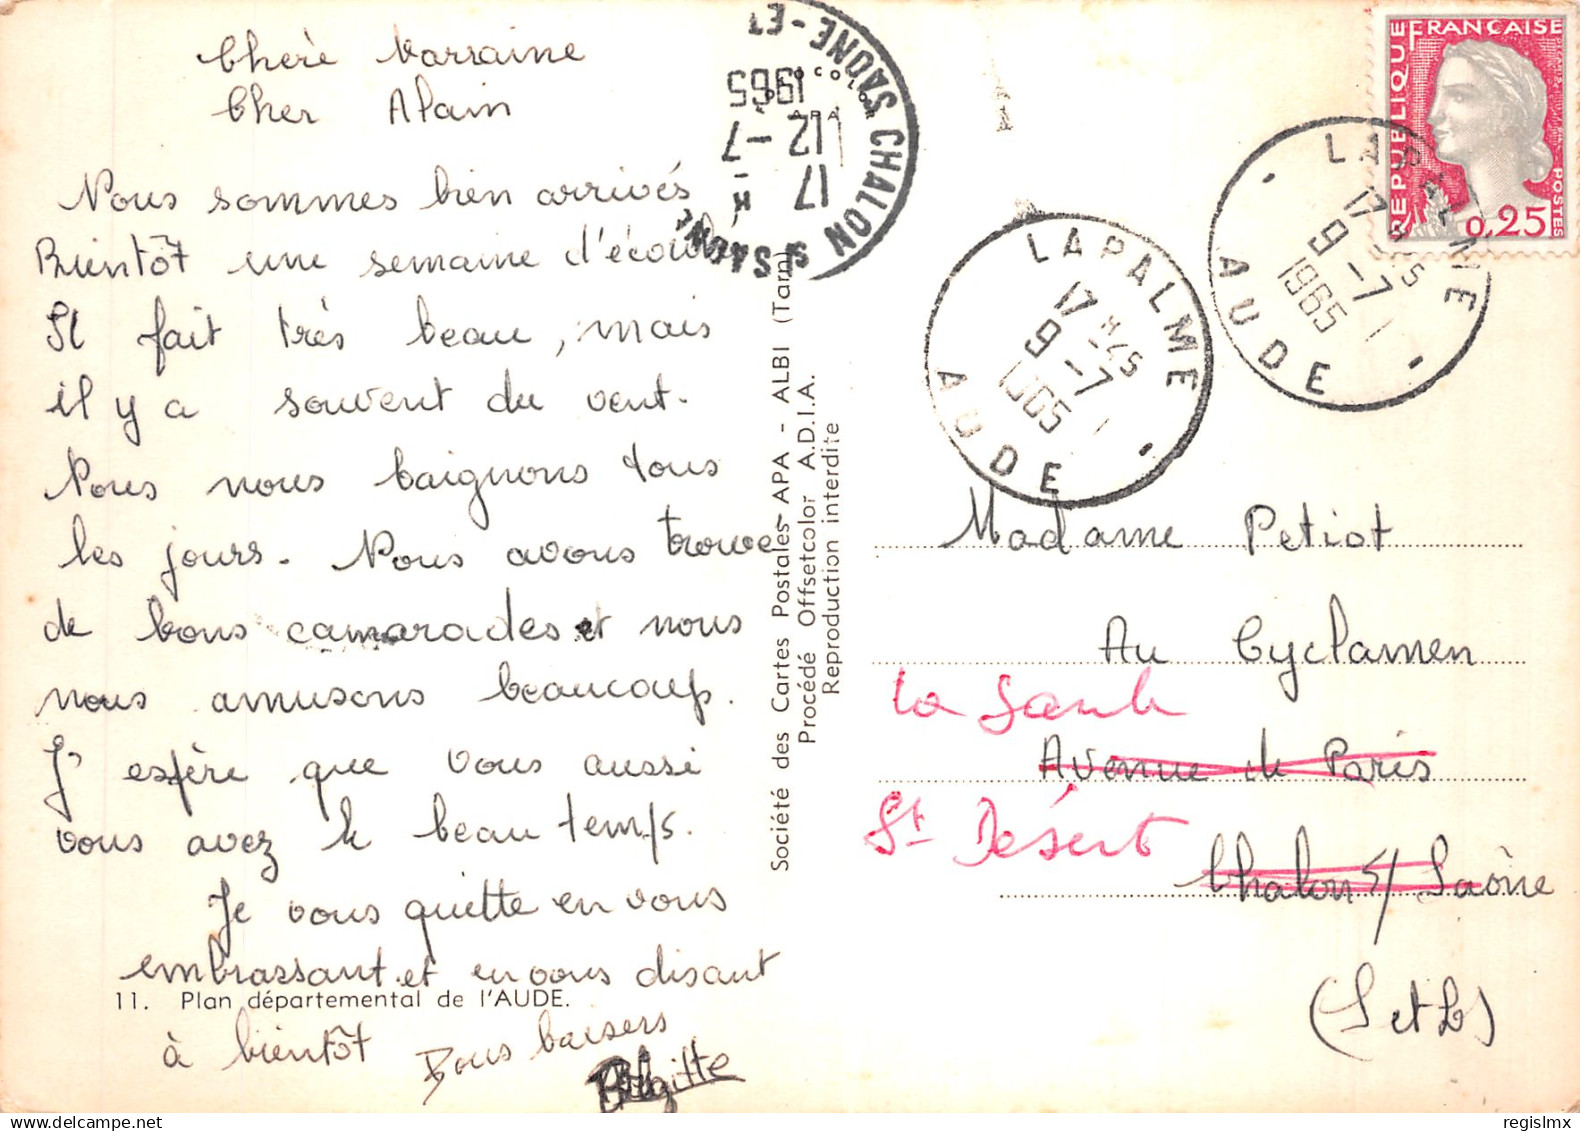 Chère Marraine
Cher Alain
Nous sommes bien arrivés
Bientôt une semaine d'écoulée
Il fait très beau, mais
il y a souvent du vent.
Nous nous baignons tous
les jours. Nous avons trouvé
de bons camarades et nous
nous amusons beaucoup.
J'espère que vous aussi
vous avez le beau temps.
Je vous quitte en vous
embrassant et en vous disant
11. Plan départemental de l'AUDE.
à bientôt Bons baisers
Brigitte
Société des Cartes Postales APA - ALBI (Tarn)
Procédé Offsetcolor A.D.I.A.
Reproduction interdite
CHALON S SAONE
SAONE-ET
17 H
12-7
1965
LAPALME
17 H 45
9-7
1965
AUDE
LAPALME
17 H 45
9-7
1965
AUDE
REPUBLIQUE FRANÇAISE
POSTES
0,25
Madame Petiot
Au Cyclamen
La Saule
Avenue de Paris
St Désert
Chalon s/ Saône
(S et L)
regislmx